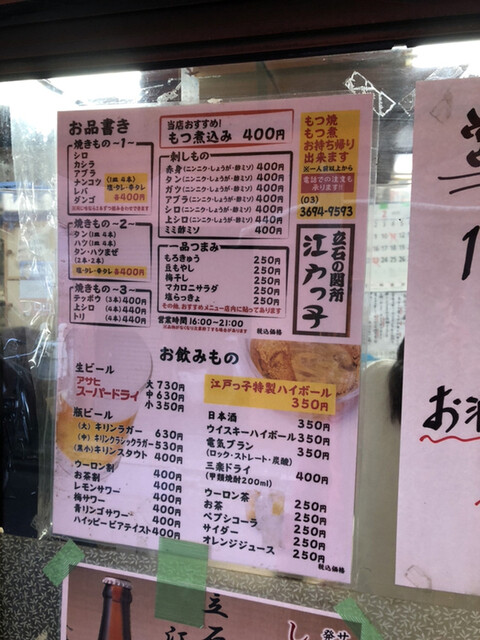 お品書き
焼きもの -1-
シロ
カシラ
アブラ
ナンコツ
レバ
ダンゴ
(1皿 4本)
塩・タレ・辛タレ
各400円
焼きもの -2-
タン (1皿 4本)
ハツ (1皿 4本)
タン・ハツまぜ
(2本・2本)
塩・タレ・辛タレ 各400円
焼きもの -3-
テッポウ (3本) 400円
上シロ (4本) 440円
トリ (4本) 440円
当店おすすめ!
もつ煮込み 400円
刺しもの
赤身 (ニンニク・しょうが・酢ミソ) 400円
タン (ニンニク・しょうが・酢ミソ) 400円
ガツ (ニンニク・しょうが・酢ミソ) 400円
アブラ (ニンニク・しょうが・酢ミソ) 400円
シロ (ニンニク・しょうが・酢ミソ) 400円
上シロ (ニンニク・しょうが・酢ミソ) 440円
ミミ酢ミソ 400円
一品つまみ
もろきゅう 250円
豆もやし 250円
梅干し 250円
マカロニサラダ 250円
塩らっきょ 250円
その他、おすすめメニュー店内に貼ってあります
営業時間 16:00~21:00
税込価格
もつ焼
もつ煮
お持ち帰り
出来ます
電話での注文も
承ります!!
(03)
3694-9593
立石の関所
江戸っ子
お飲みもの
生ビール
アサヒ
スーパードライ
大 730円
中 630円
小 350円
瓶ビール
(大) キリンラガー 630円
(中) キリンクラシックラガー 530円
(黒小) キリンスタウト 400円
ウーロン割 400円
お茶割 400円
レモンサワー 400円
梅サワー 400円
青リンゴサワー 400円
ハイッピー ビアテイスト 400円
江戸っ子特製ハイボール
350円
日本酒 350円
ウイスキーハイボール 350円
電気ブラン 350円
(ロック・ストレート・炭酸)
三楽ドライ 400円
(甲類焼酎200ml)
ウーロン茶 250円
お茶 250円
ペプシコーラ 250円
サイダー 250円
オレンジジュース 250円
税込価格
お酒
立石